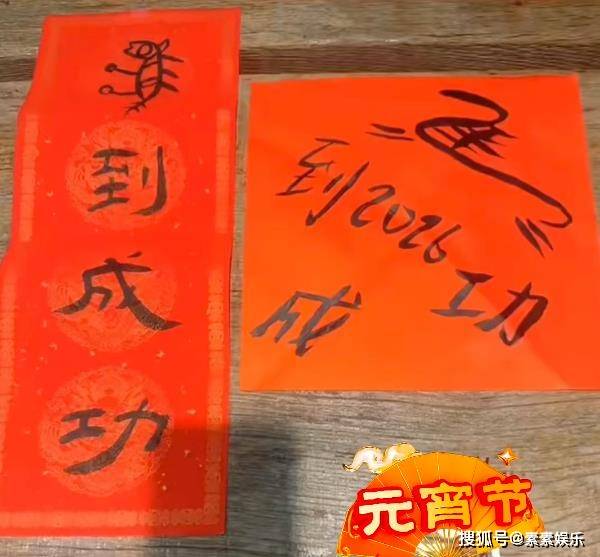 到
成
功
到2026
成
功
元宵节
搜狐号@素素娱乐